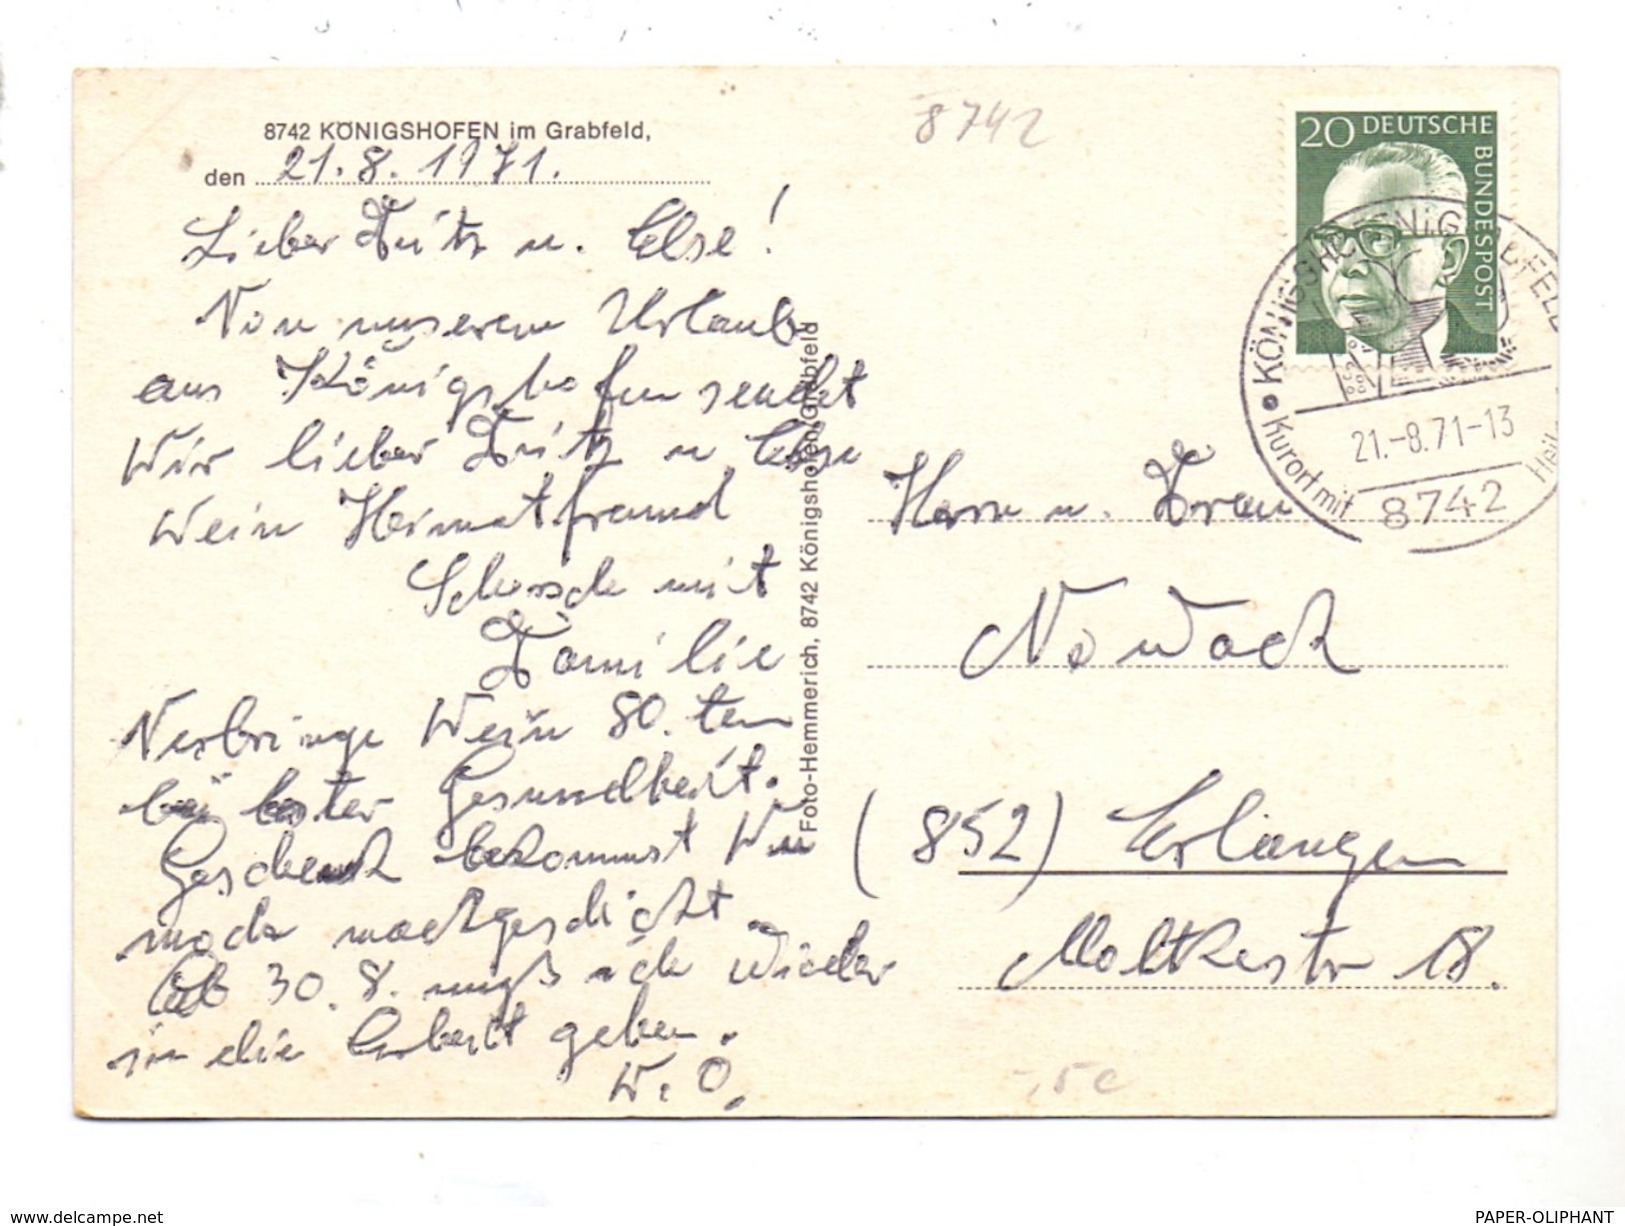 8742 KÖNIGSHOFEN im Grabfeld,
den 21.8.1971.
Lieber Fritz u. Else!
Von unserem Urlaub
aus Königshofen sendet
Wir lieber Fritz u Else
Wein Heimatfreund
mit
Familie
Verbringe Wein 80.ten
bei bester Gesundheit.
Geschenk bekommst Wu
noch nachgeschickt.
Ab 30.8. muß ich wieder
in die Arbeit gehen.
W.O.
Foto-Hemmerich, 8742 Königshofen/Grabfeld
8742
20 DEUTSCHE BUNDESPOST
KÖNIGSHOFEN i. GRABFELD
21.-8.71-13
Kurort mit Heil-
8742
Herrn u. Frau
Nowack
(852) Erlangen
Moltkestr 18.
-,50
www.delcampe.net
PAPER-OLIPHANT